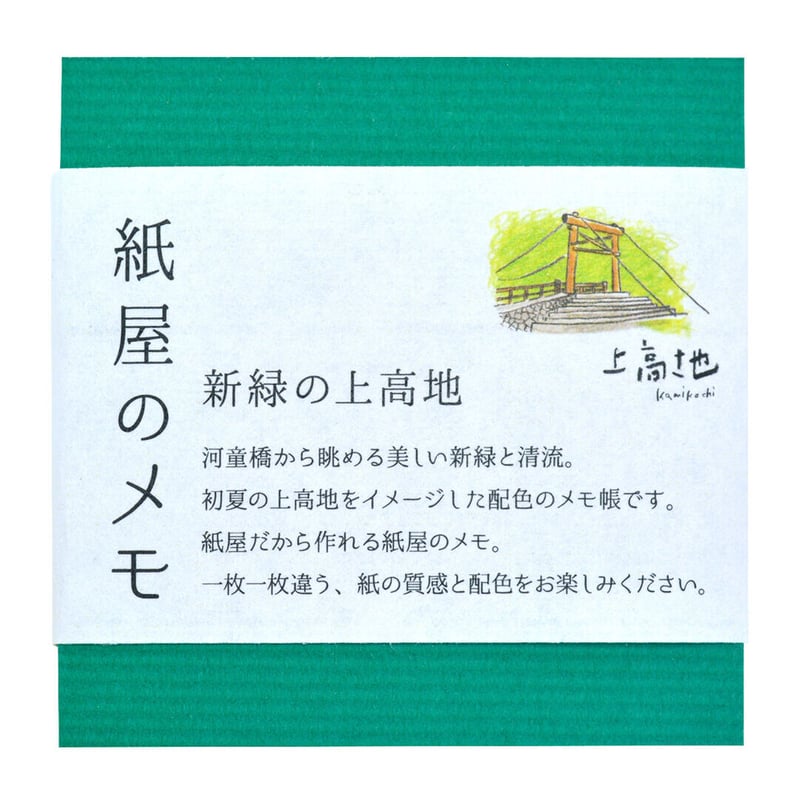 紙屋のメモ
上高地
kamikochi
新緑の上高地
河童橋から眺める美しい新緑と清流。
初夏の上高地をイメージした配色のメモ帳です。
紙屋だから作れる紙屋のメモ。
一枚一枚違う、紙の質感と配色をお楽しみください。